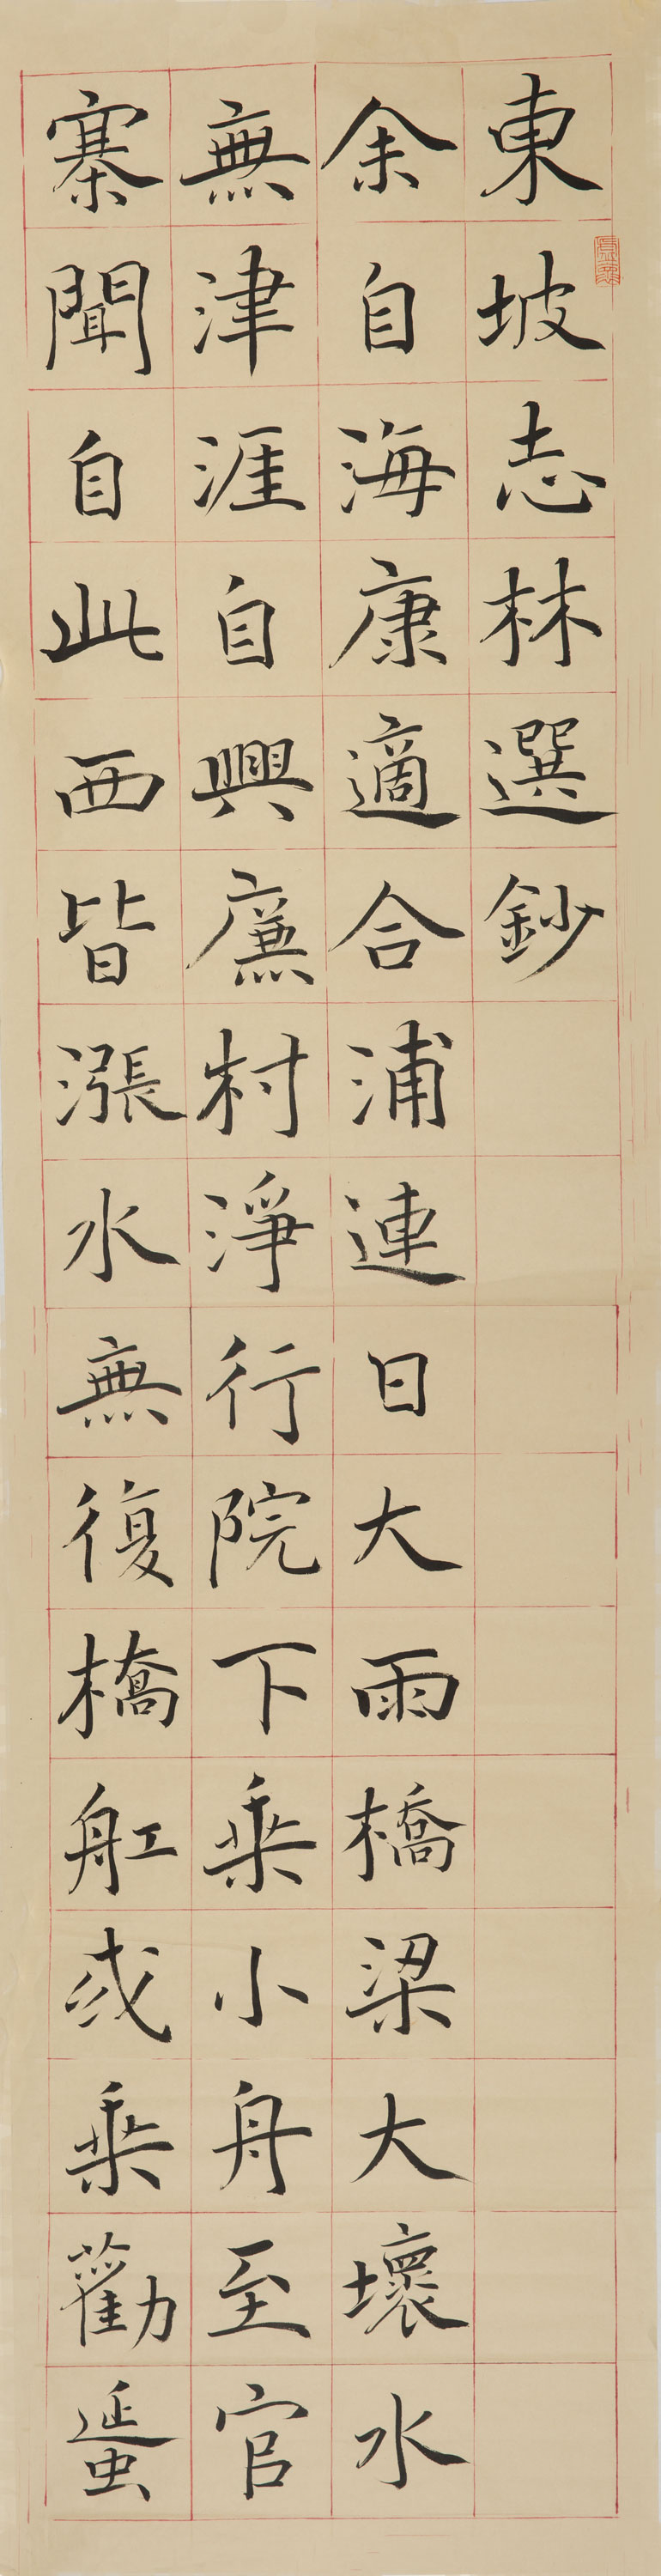 東坡志林選鈔
余自海康適合浦連日大雨橋梁大壞水
無津涯自興廉村淨行院下乘小舟至官
寨聞自此西皆漲水無復橋舡或乘勸蜑